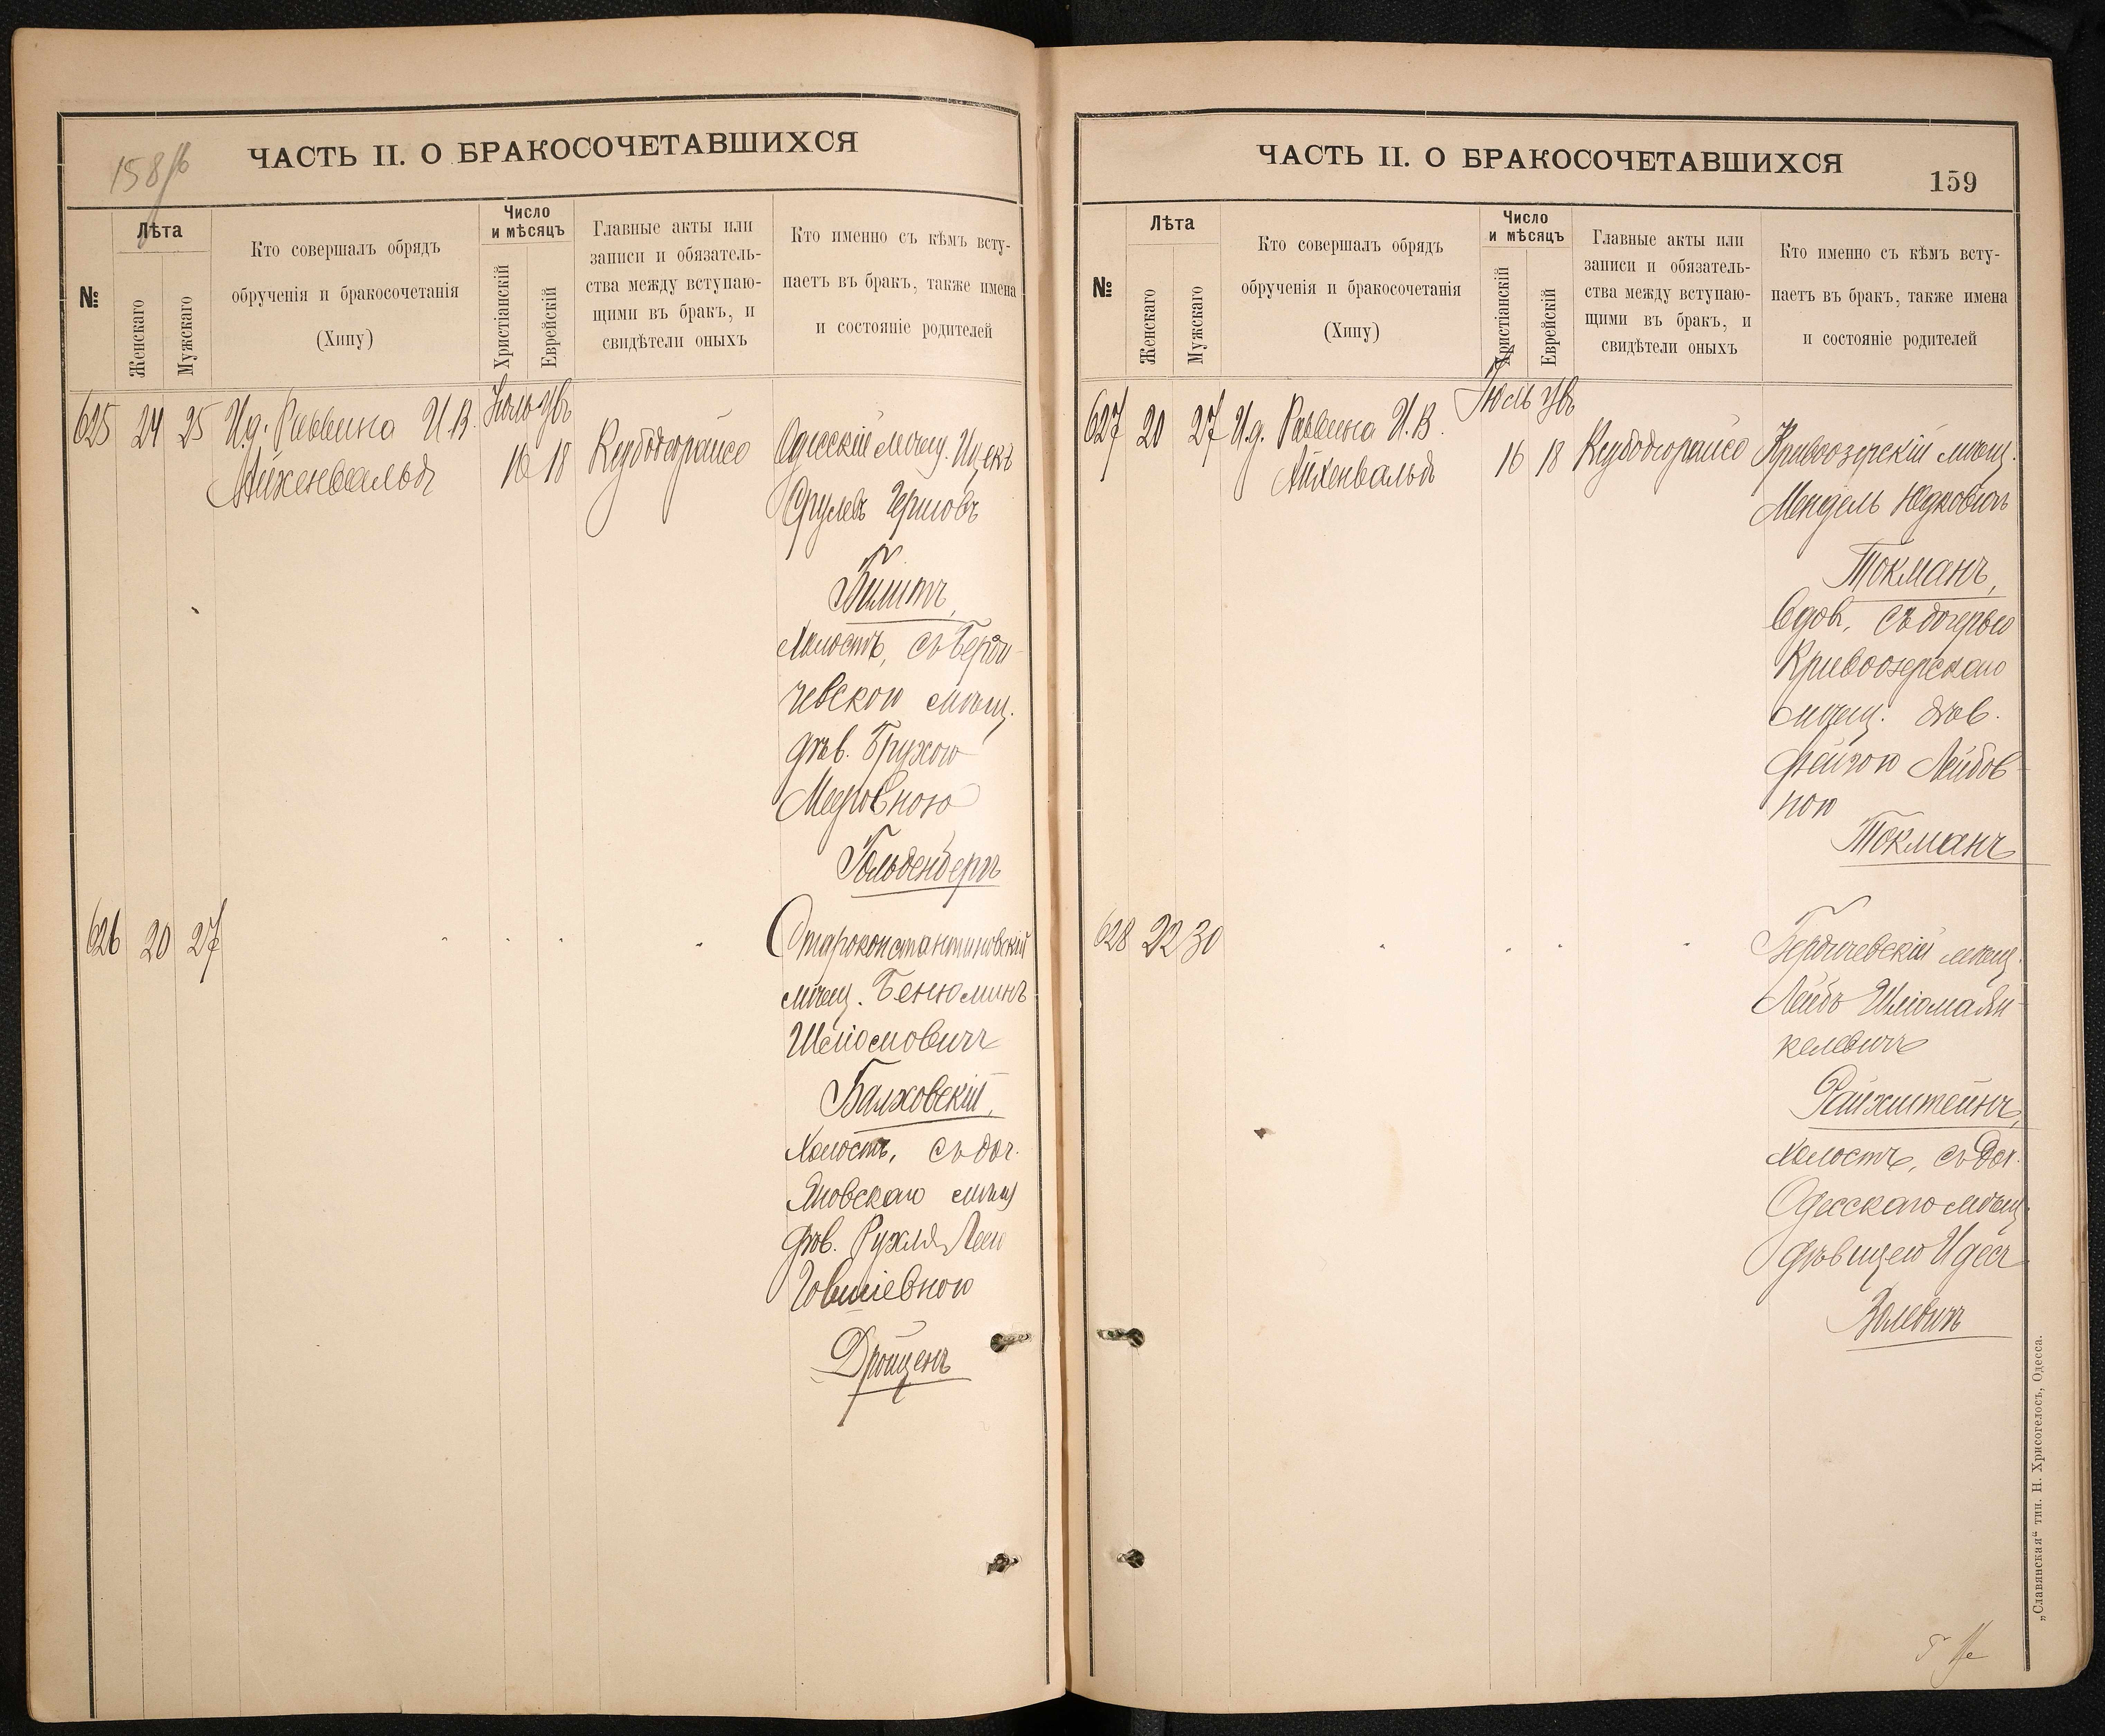 158/б
ЧАСТЬ II. О БРАКОСОЧЕТАВШИХСЯ
№
Лѣта
Женскаго
Мужскаго
Кто совершалъ обрядъ
обрученія и бракосочетанія
(Хипу)
Число
и мѣсяцъ
Христіанскій
Еврейскій
Главные акты или
записи и обязатель-
ства между вступаю-
щими въ бракъ, и
свидѣтели оныхъ
Кто именно съ кѣмъ всту-
паетъ въ бракъ, также имена
и состояніе родителей
625 24 25 И.д. Раввина И.В.
Айхенвальдъ
Іюль Ув
16 18
Одесскій мѣщ. Ицекъ
Срулевъ Гершовъ
холостъ, съ Берди-
чевскою мѣщ.
дѣв. Брухою
Мееровною
Гольденбергъ
626 20 27
Староконстантиновскій
мѣщ. Бенюминъ
Шліомовичъ
Балховскій,
холостъ, съ доч.
Яновскаго мѣщ
дѣв. Рухля Леею
ЧАСТЬ II. О БРАКОСОЧЕТАВШИХСЯ
159
№
Лѣта
Женскаго
Мужскаго
Кто совершалъ обрядъ
обрученія и бракосочетанія
(Хипу)
Число
и мѣсяцъ
Христіанскій
Еврейскій
Главные акты или
записи и обязатель-
ства между вступаю-
щими въ бракъ, и
свидѣтели оныхъ
Кто именно съ кѣмъ всту-
паетъ въ бракъ, также имена
и состояніе родителей
627 20 27 И.д. Раввина И.В.
Айхенвальдъ
Іюль Ув
16 18
Кривоозерскій мѣщ.
Мендель Юдковичъ
Токманъ,
вдов. съ дочерью
Кривоозерскаго
мѣщ. дѣв.
Фейгою Лейбов-
ною
Токманъ
628 22 30
Бердичевскій мѣщ.
Лейбъ Шліома Ян-
келевичъ
Райхштейнъ,
холостъ, съ доч.
Одесскаго мѣщ.
дѣвицею Идеся
„Славянская“ тип. Н. Хрисогелосъ, Одесса.